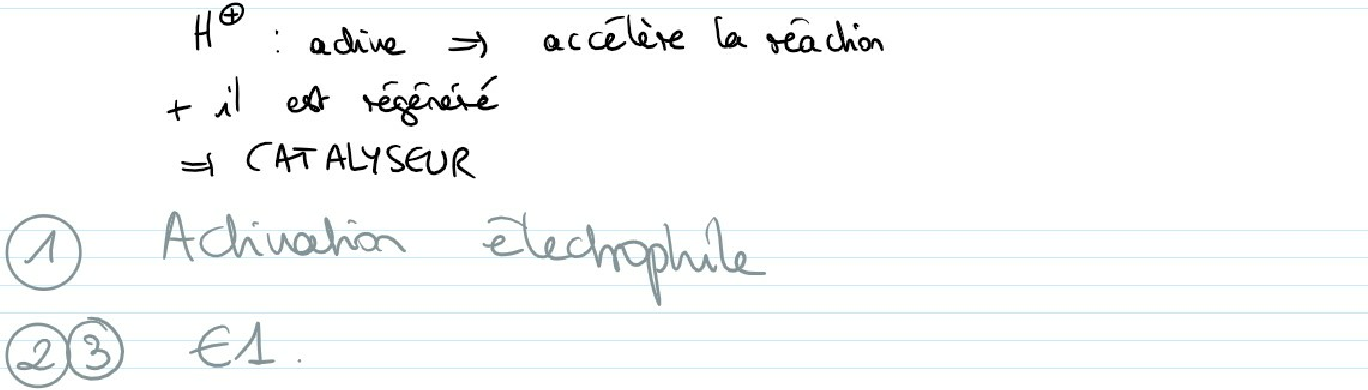 H⊕ : active ⇒ accélère la réaction
+ il est régénéré
⇒ CATALYSEUR
① Activation électrophile
②③ E1.